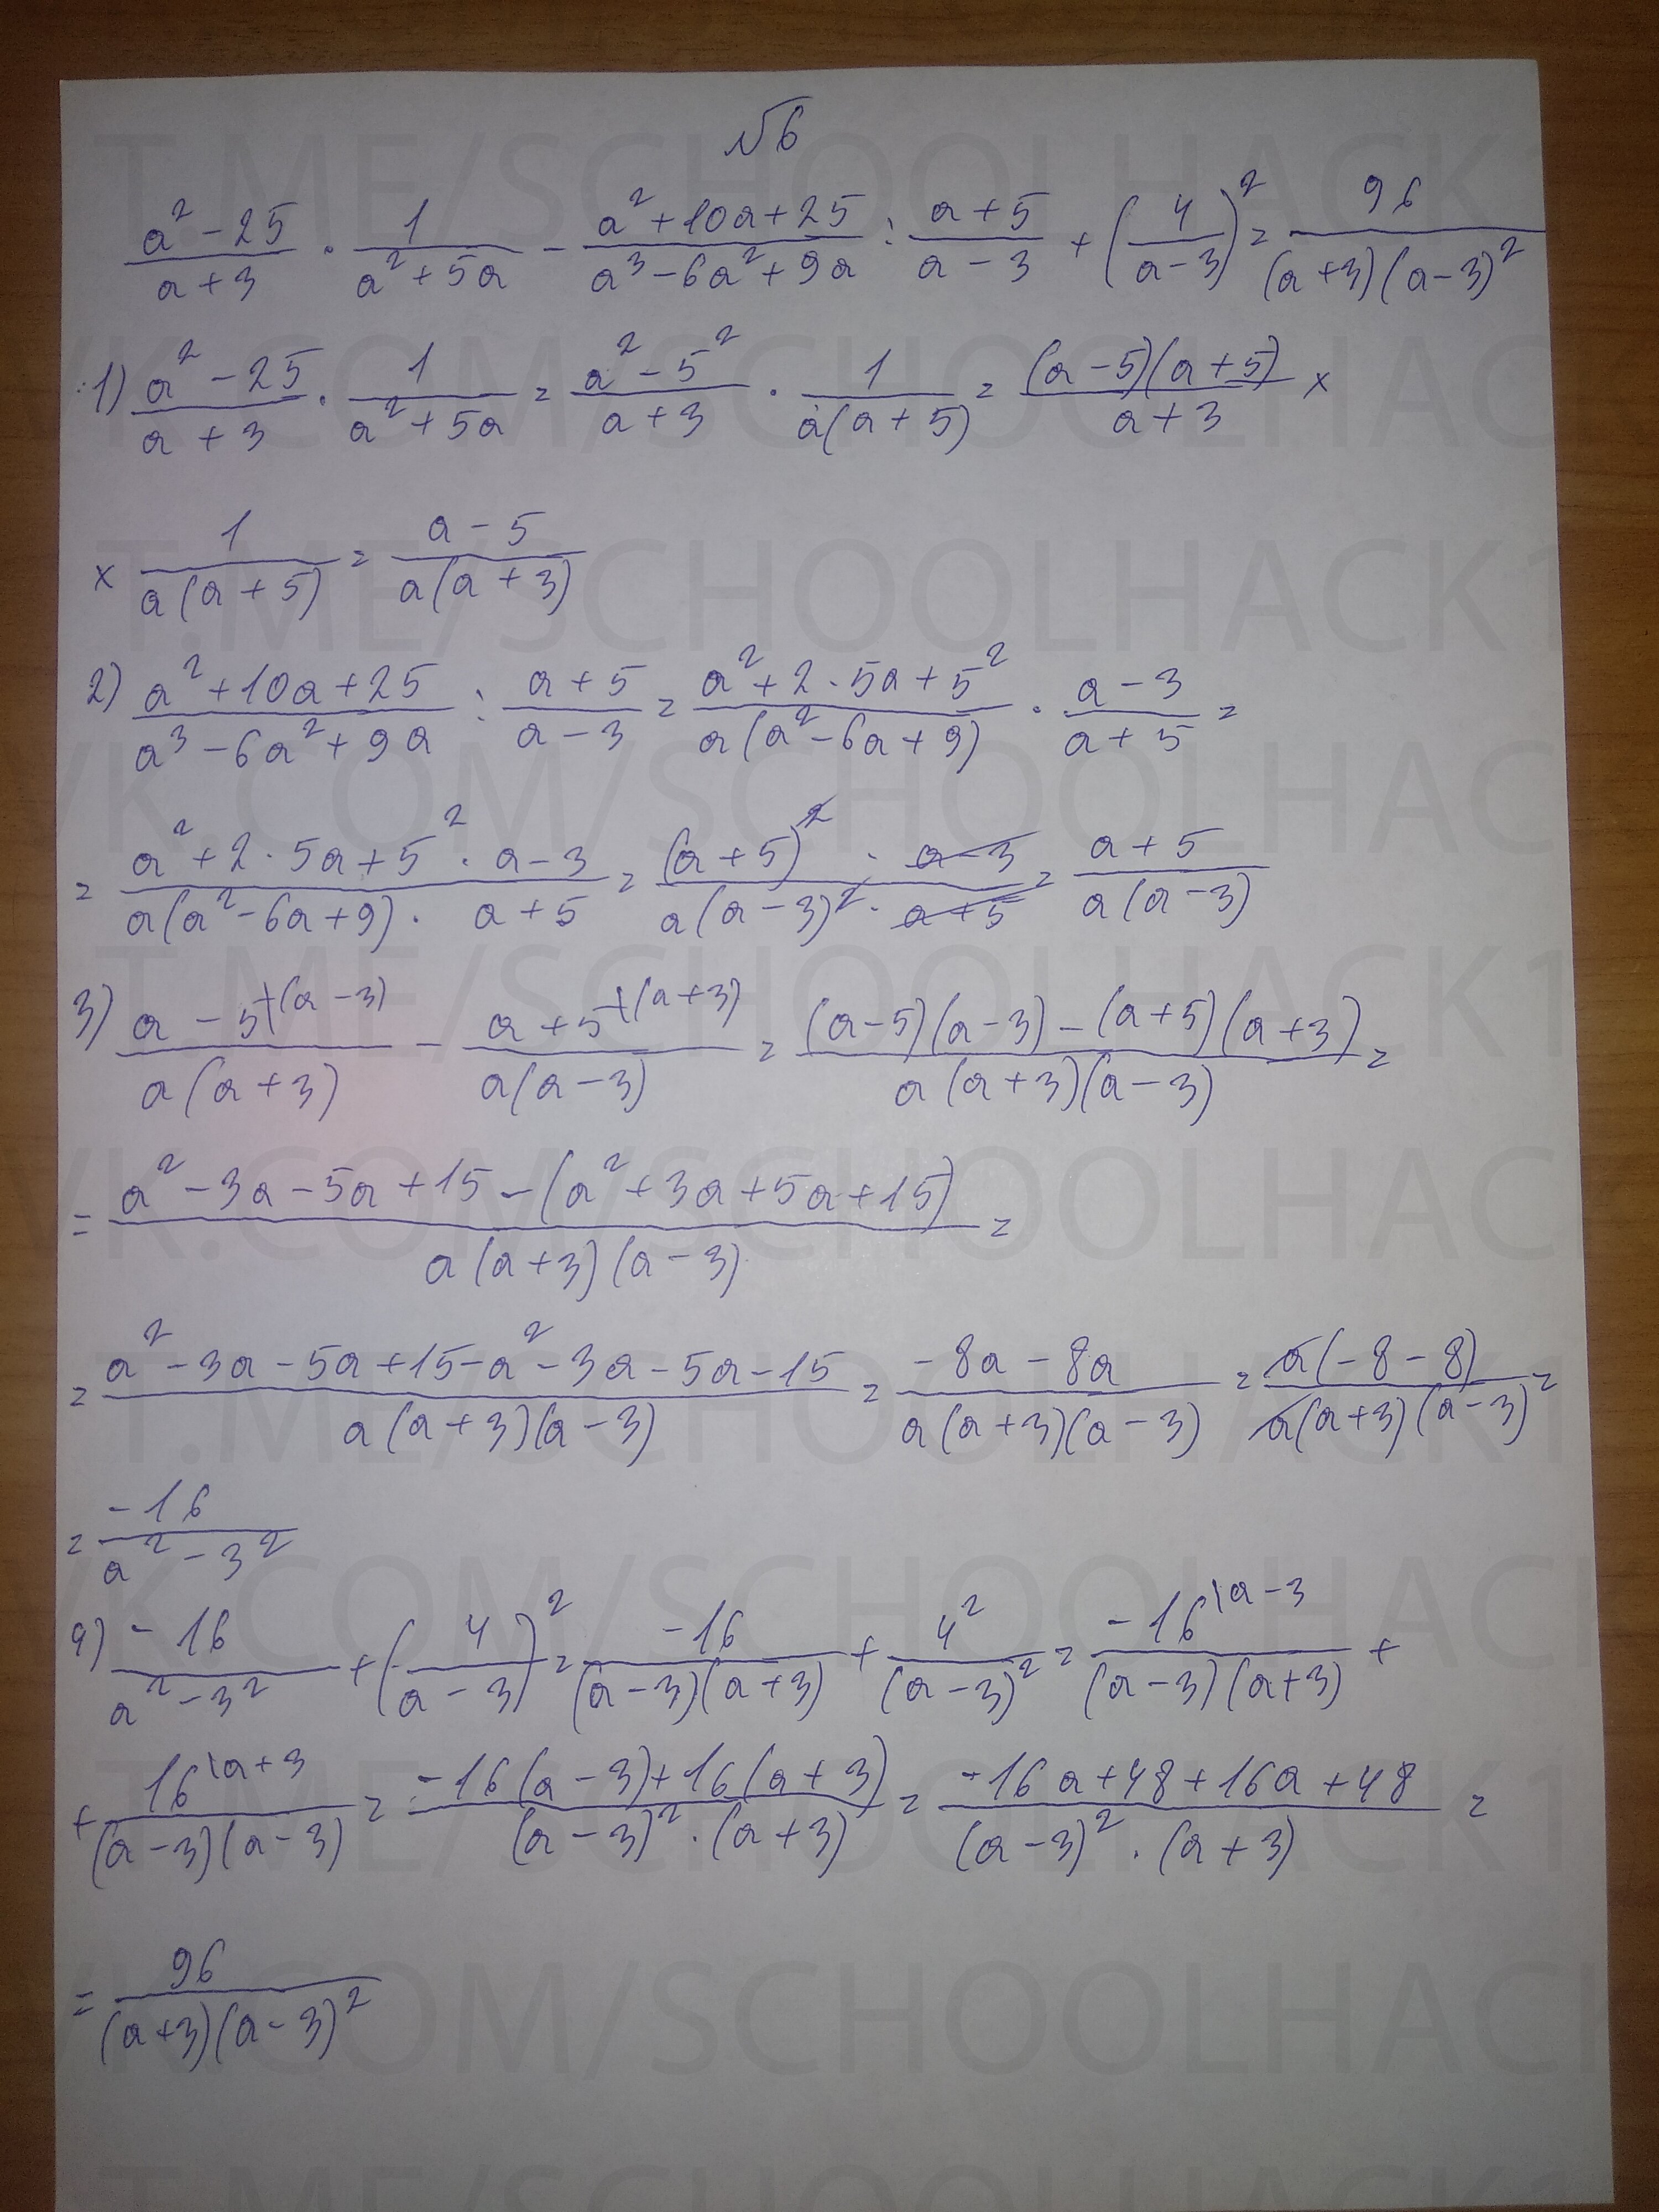 №6
(a² - 25)/(a + 3) · 1/(a² + 5a) - (a² + 10a + 25)/(a³ - 6a² + 9a) : (a + 5)/(a - 3) + (4/(a - 3))² = 96/((a + 3)(a - 3)²)
1) (a² - 25)/(a + 3) · 1/(a² + 5a) = (a² - 5²)/(a + 3) · 1/(a(a + 5)) = ((a - 5)(a + 5))/(a + 3) ×
× 1/(a(a + 5)) = (a - 5)/(a(a + 3))
2) (a² + 10a + 25)/(a³ - 6a² + 9a) : (a + 5)/(a - 3) = (a² + 2 · 5a + 5²)/(a(a² - 6a + 9)) · (a - 3)/(a + 5) =
= (a² + 2 · 5a + 5² · a - 3)/(a(a² - 6a + 9) · a + 5) = ((a + 5)² · a - 3)/(a(a - 3)² · a + 5) = (a + 5)/(a(a - 3))
3) (a - 5\(a - 3))/(a(a + 3)) - (a + 5\(a + 3))/(a(a - 3)) = ((a - 5)(a - 3) - (a + 5)(a + 3))/(a(a + 3)(a - 3)) =
= (a² - 3a - 5a + 15 - (a² + 3a + 5a + 15))/(a(a + 3)(a - 3)) =
= (a² - 3a - 5a + 15 - a² - 3a - 5a - 15)/(a(a + 3)(a - 3)) = (-8a - 8a)/(a(a + 3)(a - 3)) = (a(-8 - 8))/(a(a + 3)(a - 3)) =
= -16/(a² - 3²)
4) -16/(a² - 3²) + (4/(a - 3))² = -16/((a - 3)(a + 3)) + 4²/(a - 3)² = -16\a - 3/((a - 3)(a + 3)) +
+ 16\a + 3/((a - 3)(a - 3)) = (-16(a - 3) + 16(a + 3))/((a - 3)² · (a + 3)) = (-16a + 48 + 16a + 48)/((a - 3)² · (a + 3)) =
= 96/((a + 3)(a - 3)²)
T.ME/SCHOOLHACK1
VK.COM/SCHOOLHACK